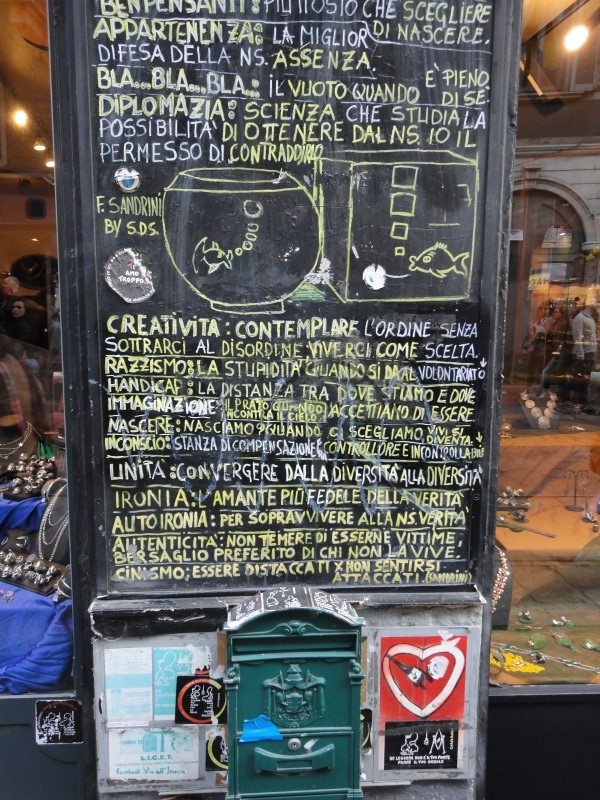 BENPENSANTI: PIUTTOSTO CHE SCEGLIERE
APPARTENENZA: LA MIGLIOR DI NASCERE.
DIFESA DELLA NS. ASSENZA
BLA...BLA...BLA: IL VUOTO QUANDO È PIENO DI SÉ.
DIPLOMAZIA: SCIENZA CHE STUDIA LA
POSSIBILITÀ DI OTTENERE DAL NS. IO IL
PERMESSO DI CONTRADDIRLO
F. SANDRINI
BY S.D.S.
AMO
TROPPO
CREATIVITÀ: CONTEMPLARE L'ORDINE SENZA
SOTTRARCI AL DISORDINE VIVERCI COME SCELTA.
RAZZISMO: LA STUPIDITÀ QUANDO SI DÀ AL VOLONTARIATO
HANDICAP: LA DISTANZA TRA DOVE STIAMO E DOVE
IMMAGINAZIONE: IL PRATO QUANDO INCONTRA IL CIELO ACCETTIAMO DI ESSERE
NASCERE: NASCIAMO QUANDO CI SCEGLIAMO VIVI SI DIVENTA.
INCONSCIO: STANZA DI COMPENSAZIONE CONTROLLORE E INCONTROLLABILE
UNITÀ: CONVERGERE DALLA DIVERSITÀ ALLA DIVERSITÀ
IRONIA: L'AMANTE PIÙ FEDELE DELLA VERITÀ
AUTOIRONIA: PER SOPRAVVIVERE ALLA NS. VERITÀ
AUTENTICITÀ: NON TEMERE DI ESSERNE VITTIME,
BERSAGLIO PREFERITO DI CHI NON LA VIVE.
CINISMO: ESSERE DISTACCATI X NON SENTIRSI
ATTACCATI. (SANDRINI)
L.I.C.E.T.